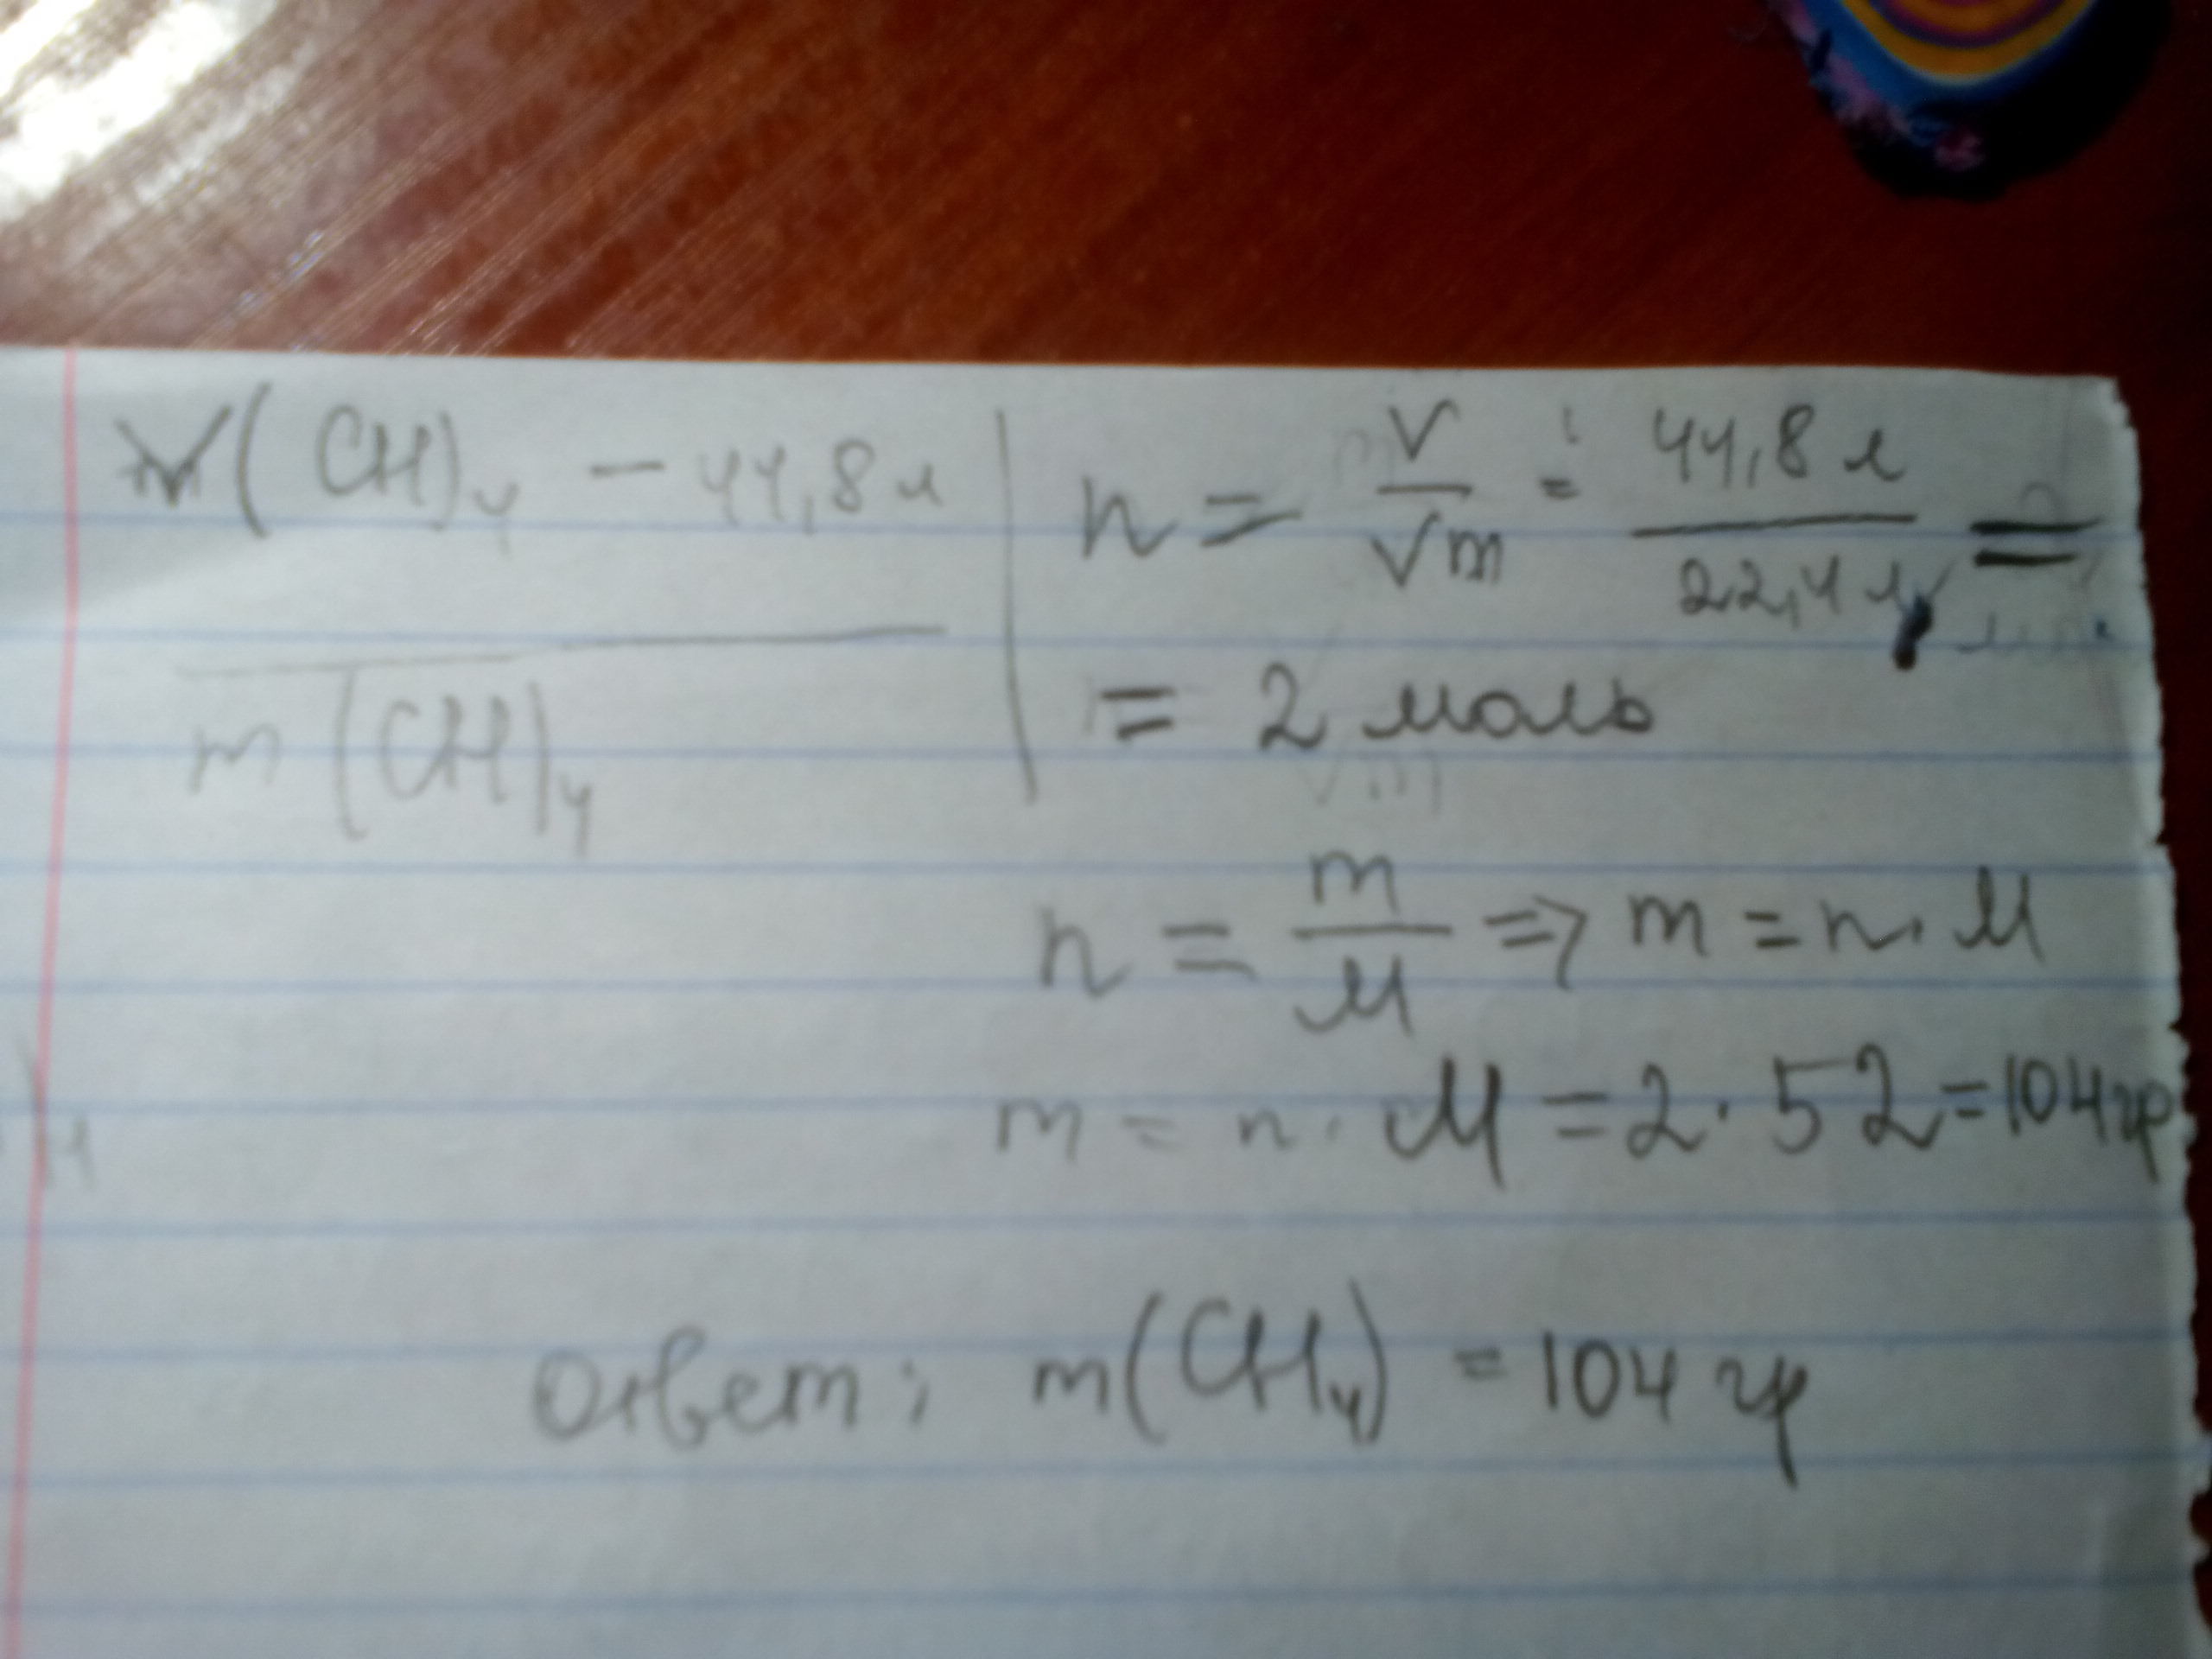 V(CH)₄ – 44,8л
m(CH)₄
n = V/Vm = 44,8 л/22,4 л/ =
= 2 моль
n = m/M => m = n · M
m = n · M = 2 · 52 = 104гр
Ответ: m(CH₄) = 104 гр